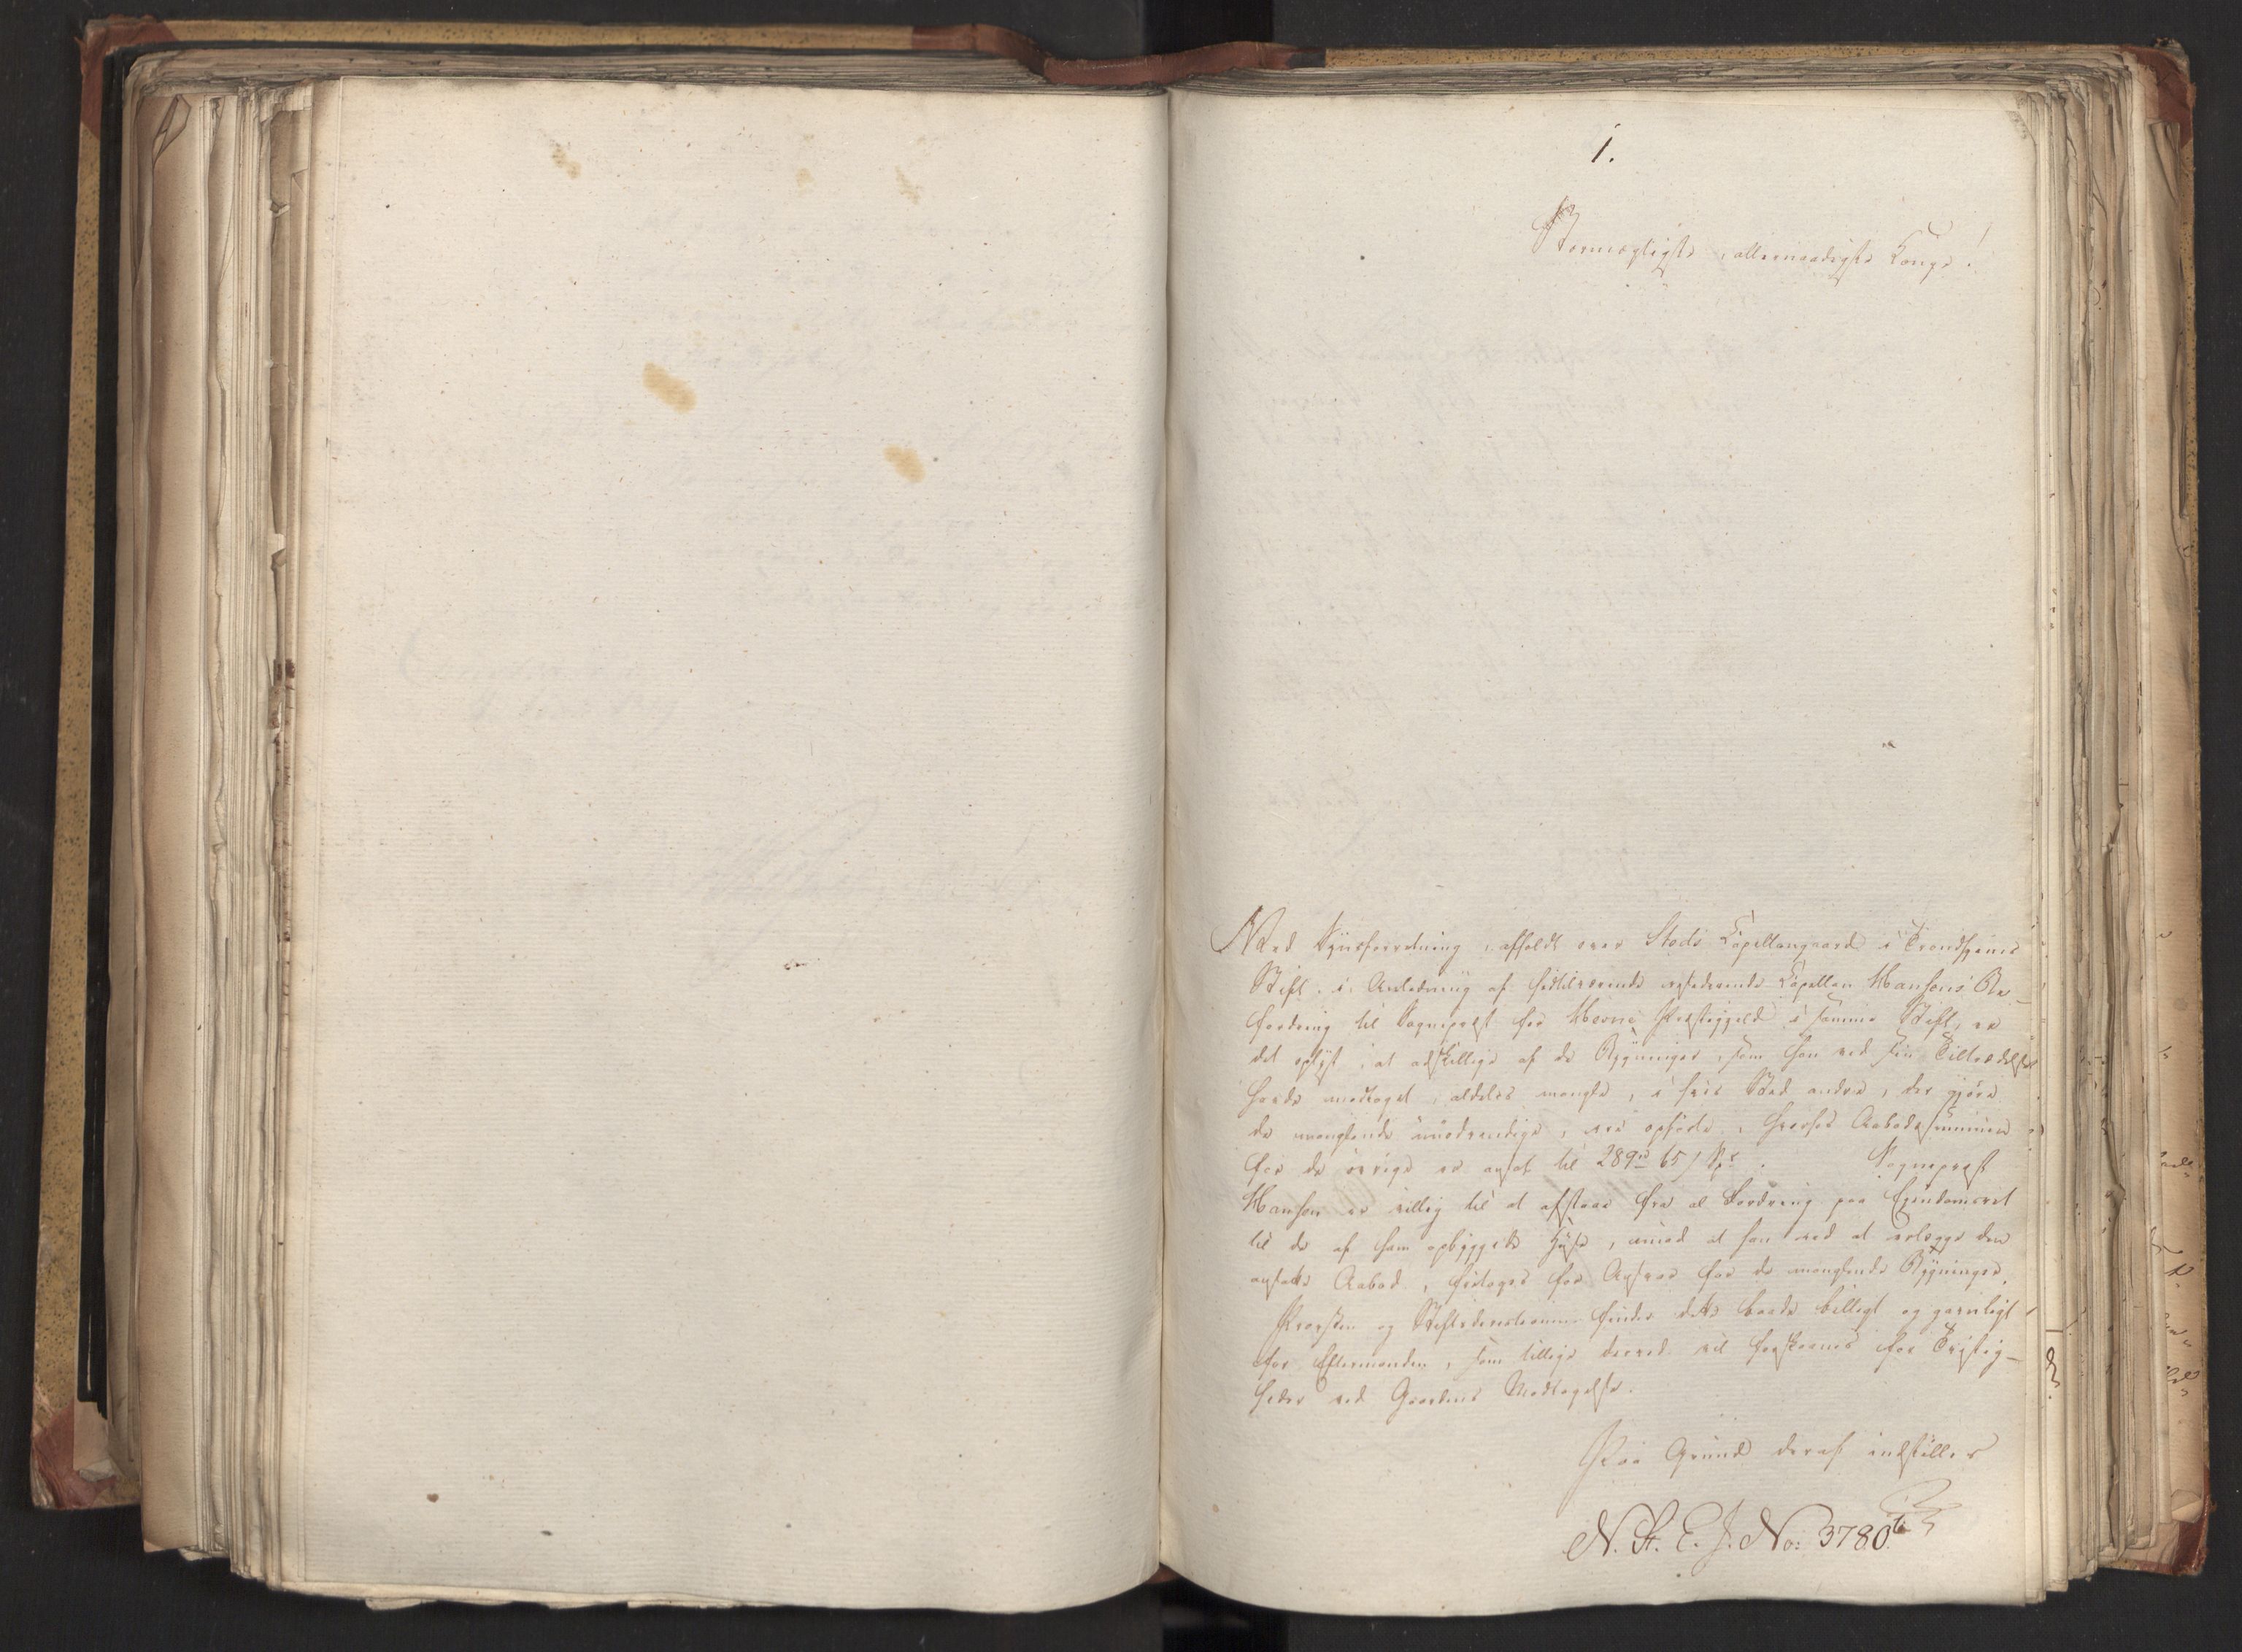 1.
Stormægtigste, allernaadigste Konge!
Ved Synsforretning, afholdt over Stods Capellangaard i Trondhjems
Stift i Anledning af hidtilværende residerende Capellan Hansens Be-
fordring til Sognepræst for Hevne Præstegjeld i samme Stift, er
det oplyst, at adskillige af de Bygninger, som han ved sin Tiltrædelse
havde modtaget, aldeles mangle, i hvis Sted andre, der gjøre
de manglende unødvendige, ere opførte, hvorhos Aabodssummen
for de øvrige er ansat til 289 65 / Sognepræst
Hansen er villig til at afstaae fra al Fordring paa Eiendomsret
til de af ham opbyggede Huse, imod at han ved at erlægge den
ansatte Aabod, fritages for Ansvar for de manglende Bygninger.
Provsten og Stiftsdirectionen finder dette baade billigt og gavnligt
for Eftermanden, som tillige derved vil forskaanes for Tvistig-
heder ved Gaardens Modtagelse.
Paa Grund deraf indstilles
N. St. E. J. No: 3780